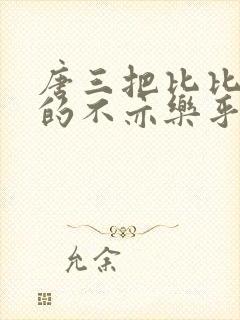 唐三把比比
的不亦樂乎
允余